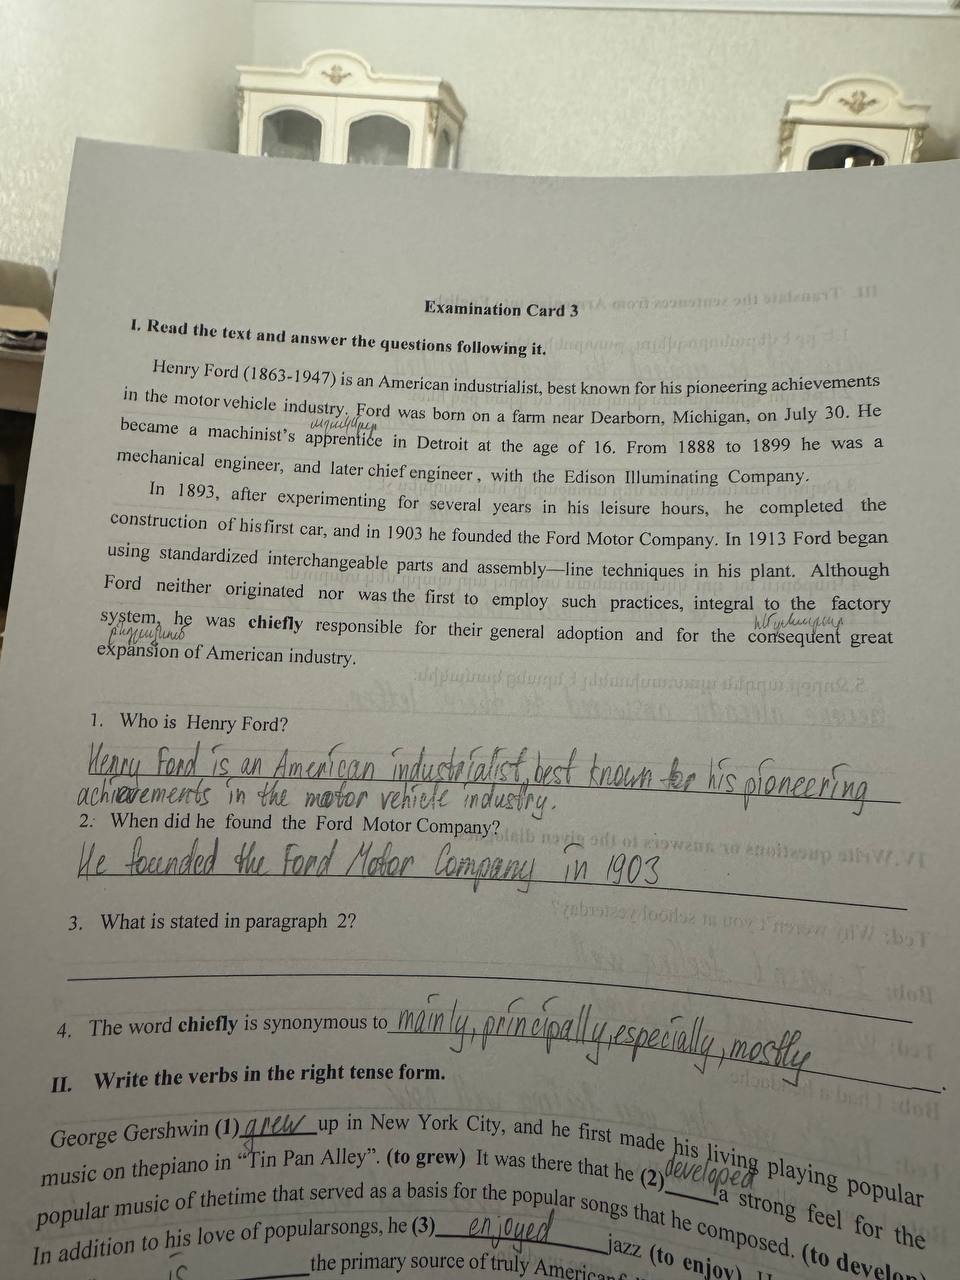 Examination Card 3
I. Read the text and answer the questions following it.
Henry Ford (1863-1947) is an American industrialist, best known for his pioneering achievements
in the motor vehicle industry. Ford was born on a farm near Dearborn, Michigan, on July 30. He
became a machinist's apprentice in Detroit at the age of 16. From 1888 to 1899 he was a
mechanical engineer, and later chief engineer, with the Edison Illuminating Company.
In 1893, after experimenting for several years in his leisure hours, he completed the
construction of hisfirst car, and in 1903 he founded the Ford Motor Company. In 1913 Ford began
using standardized interchangeable parts and assembly—line techniques in his plant. Although
Ford neither originated nor was the first to employ such practices, integral to the factory
system, he was chiefly responsible for their general adoption and for the consequent great
expansion of American industry.
1. Who is Henry Ford?
Henry Ford is an American industrialist, best known for his pioneering
achievements in the motor vehicle industry.
2. When did he found the Ford Motor Company?
He founded the Ford Motor Company in 1903
3. What is stated in paragraph 2?
4. The word chiefly is synonymous to mainly, principally, especially, mostly.
II. Write the verbs in the right tense form.
George Gershwin (1) grew up in New York City, and he first made his living playing popular
music on thepiano in “Tin Pan Alley”. (to grew) It was there that he (2) developed a strong feel for the
popular music of thetime that served as a basis for the popular songs that he composed. (to develop
In addition to his love of popularsongs, he (3) enjoyed jazz (to enjoy)
is the primary source of truly American